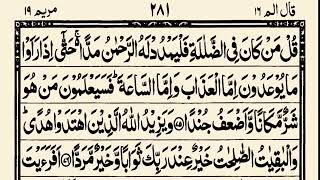 قال الم ١٦ ٢٨١ مریم ١٩
قُلْ مَنْ كَانَ فِی الضَّلٰلَةِ فَلْیَمْدُدْ لَهُ الرَّحْمٰنُ مَدًّا ۚ حَتّٰۤی اِذَا رَاَوْا
مَا یُوْعَدُوْنَ اِمَّا الْعَذَابَ وَ اِمَّا السَّاعَةَ ؕ فَسَیَعْلَمُوْنَ مَنْ هُوَ
شَرٌّ مَّكَانًا وَّ اَضْعَفُ جُنْدًا ﴿۷۵﴾ وَ یَزِیْدُ اللّٰهُ الَّذِیْنَ اهْتَدَوْا هُدًی ؕ
وَ الْبٰقِیٰتُ الصّٰلِحٰتُ خَیْرٌ عِنْدَ رَبِّكَ ثَوَابًا وَّ خَیْرٌ مَّرَدًّا ﴿۷۶﴾ اَفَرَءَیْتَ